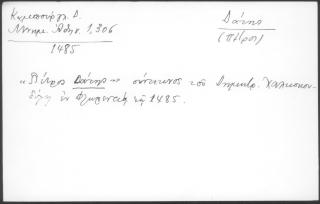 Καμπούρογλ. Δ.
Μνημ. Αθην. 1,306
1485
Δάτης
(Πέτρος)
"Πέτρος Δάτης" σύντεκνος του Δημητρ. Χαλκοκον-
δύλη ἐν Φλωρεντίᾳ τῷ 1485.